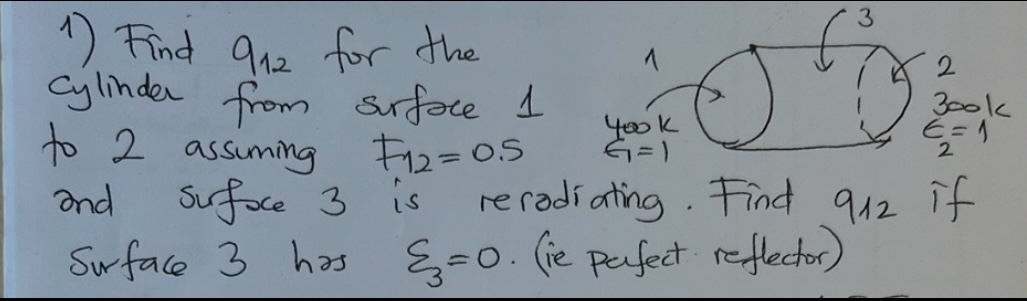 1) Find q12 for the
cylinder from surface 1
to 2 assuming F12 = 0.5
and surface 3 is reradiating. Find q12 if
surface 3 has ε3=0. (ie perfect reflector)
3
1
2
400k
ε1=1
300k
ε2=1